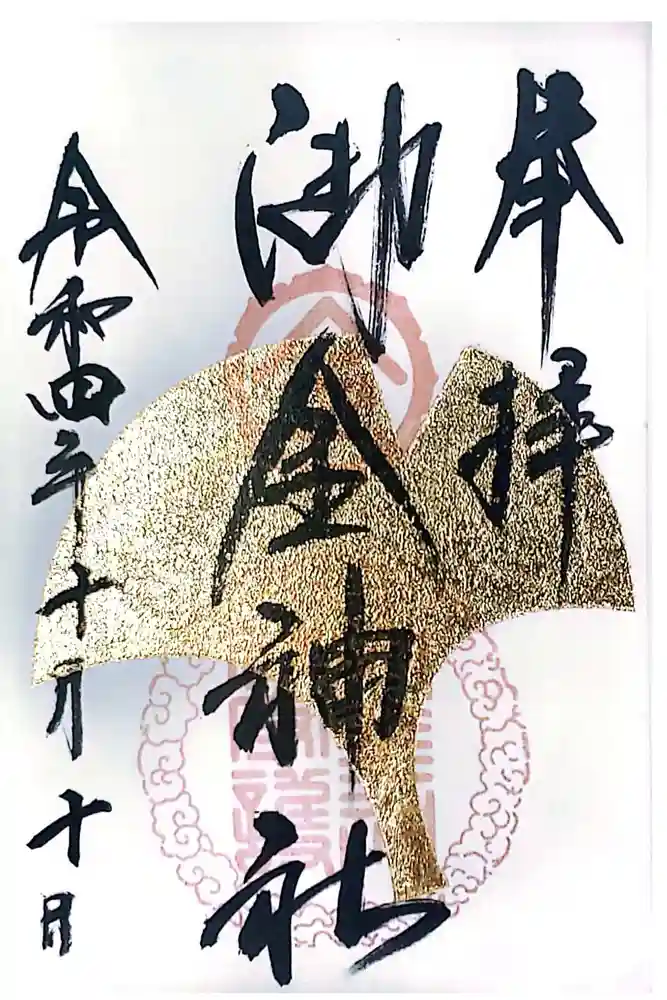 奉拝
御金神社
令和四年十月十日